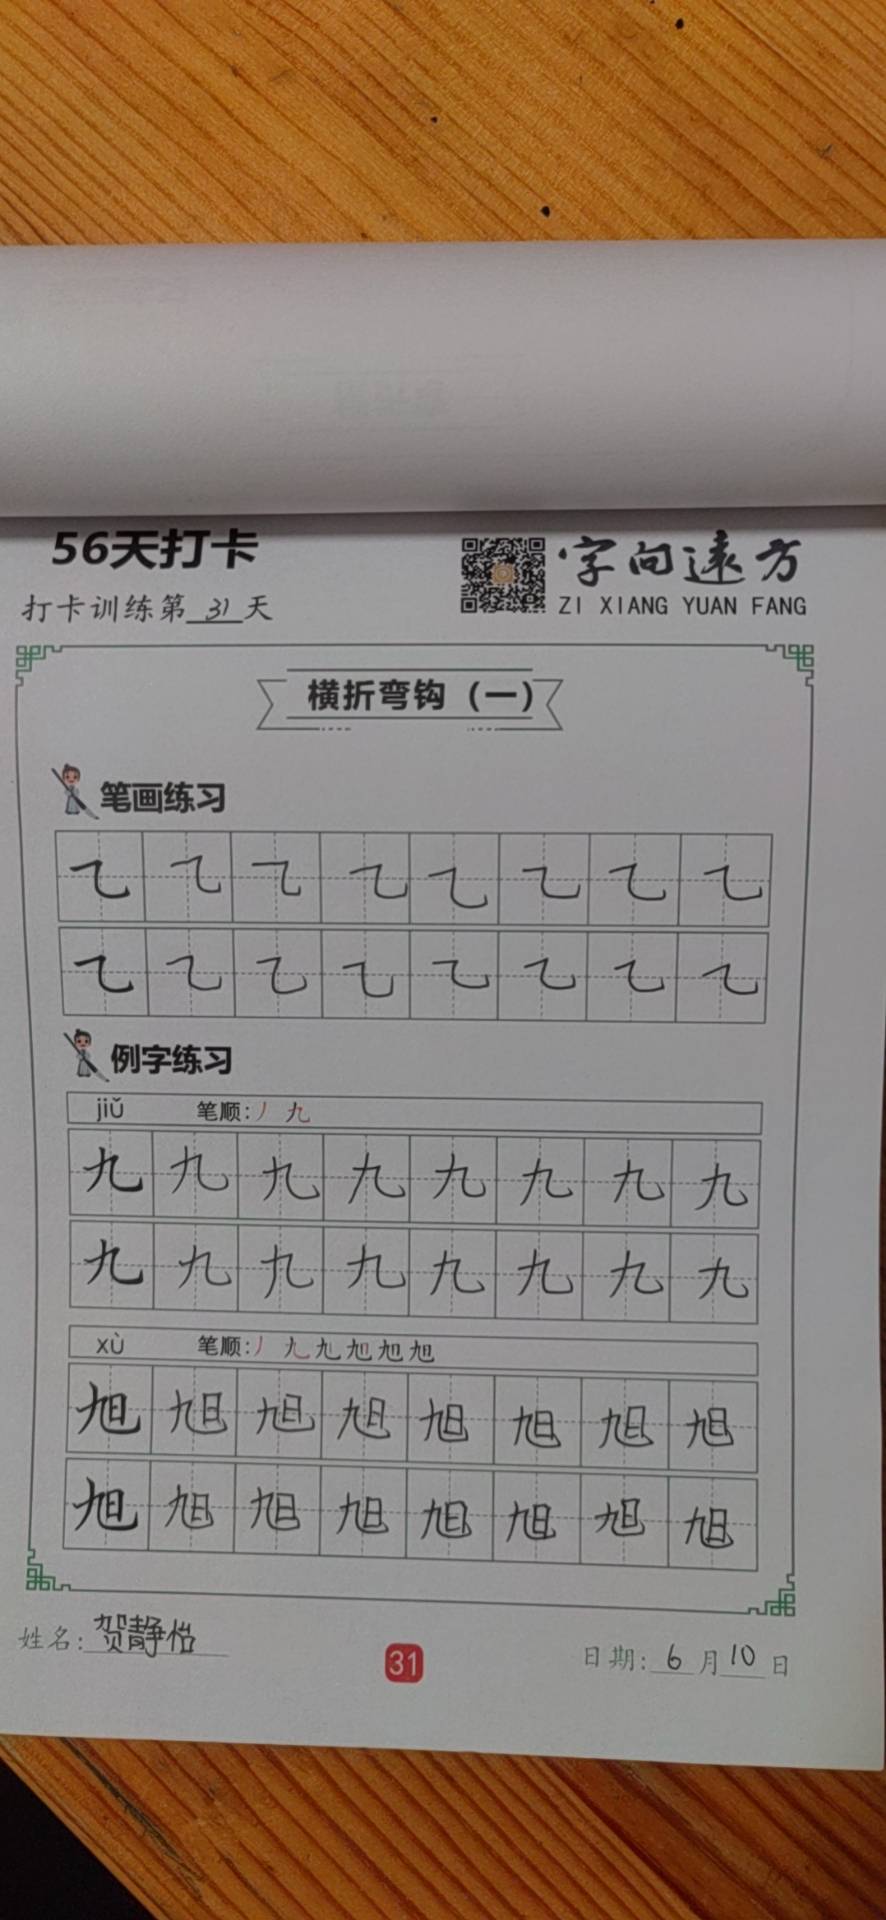 56天打卡
字向远方
ZI XIANG YUAN FANG
打卡训练第 31 天
横折弯钩（一）
笔画练习
乁 乁 乁 乁 乁 乁 乁 乁
乁 乁 乁 乁 乁 乁 乁 乁
例字练习
jiǔ 笔顺：丿 九
九 九 九 九 九 九 九 九
九 九 九 九 九 九 九 九
xù 笔顺：丿 九 旭 旭 旭 旭
旭 旭 旭 旭 旭 旭 旭 旭
旭 旭 旭 旭 旭 旭 旭 旭
姓名：贺静怡
31
日期：6月10日